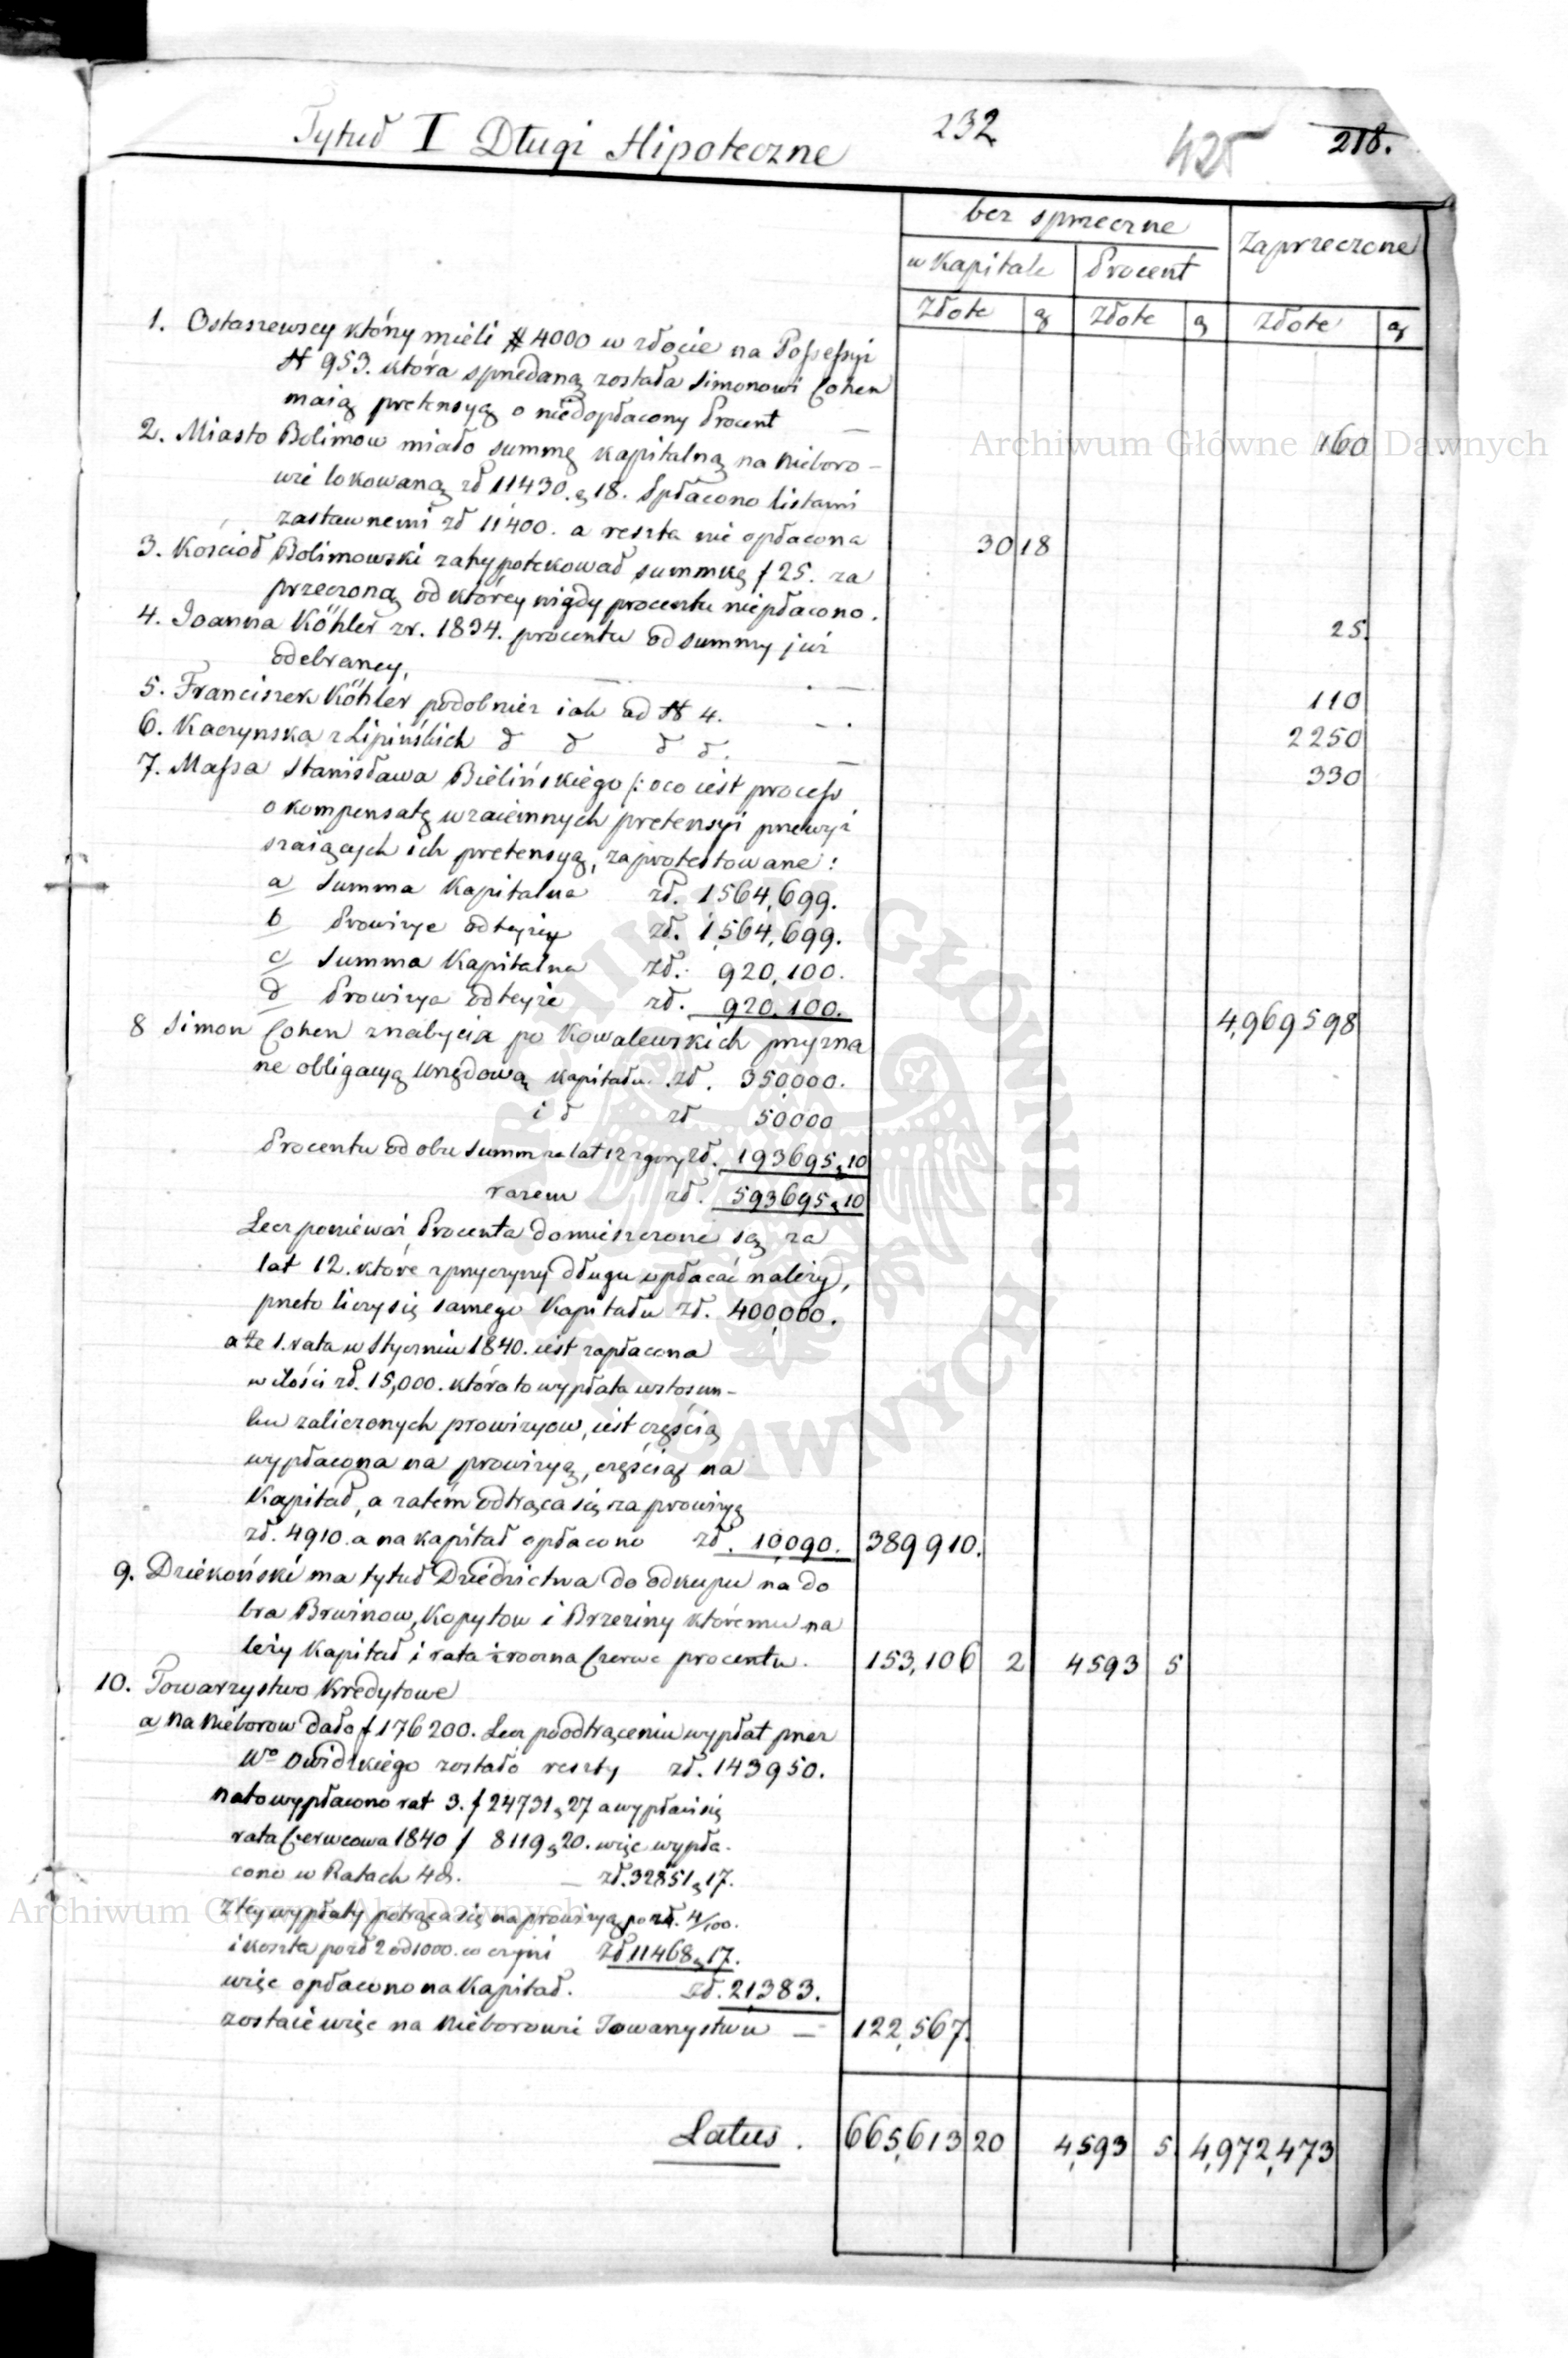 Tytuł I Długi Hipoteczne 232 425 218.
bez sprzeczne zaprzeczone
w Kapitale Procent
Złote g Złote g Złote g
1. Ostaszewscy którzy mieli # 4000 w złocie na Possessyi
N 953. która sprzedaną została Simonowi Cohen
maią pretensyą o niedopłacony Procent — 160
2. Miasto Bolimow miało summę kapitalną na Nieboro-
wie lokowaną zł 11430. g 18. Spłacono listami
zastawnemi zł 11400. a reszta nie opłacona 30 18
3. Kościoł Bolimowski zahypotekował summkę f 25. za
przeczoną od którey nigdy procentu niepłacono. 25.
4. Joanna Köhler z r. 1834. procentu od summy już
odebraney. — . — 110
5. Franciszek Köhler podobnież iak ad N 4. - . 2250
6. Kaczynska z Lipińskich d d d d. — 330
7. Massa Stanisława Bielińskiego /: oco iest process
o kompensatę wzaiemnych pretensyi przewyż
szaiących ich pretensyą, zaprotestowane:
a Summa Kapitalna zł. 1,564,699.
b Prowizye od teyże zł. 1,564,699.
c Summa Kapitalna zł. 920,100.
d Prowizya od teyże zł. 920,100. 4,969598
8 Simon Cohen z nabycia po Kowalewskich przyzna
ne obligacyą urzędową kapitału. zł. 350,000.
i d zł 50,000
Procentu od obu summ za lat 12 z gory zł. 193695 g 10
razem zł. 593695 g 10
Lecz ponieważ Procenta domieszczone są za
lat 12. które z przyczyny długu opłacać należy,
przeto liczy się samego Kapitału zł. 400,000.
a że 1. rata w Styczniu 1840. iest zapłacona
w ilości zł. 15,000. która to wypłata w stosun-
ku zaliczonych prowizyow, iest częścią
wypłacona na prowizyą, częścią na
Kapitał, a zatém odtrąca się za prowizyą
zł. 4910. a na kapitał opłacono zł. 10,090. 389910.
9. Dziekoński ma tytuł Dziedzictwa do odkupu na do
bra Brwinow, Kopytow i Brzeziny któremu na
leży Kapitał i rata Czerwc procentu. 153,106 2 4593 5
10. Towarzystwo Kredytowe
a Na Nieborow dało f 176200. Lecz po odtrąceniu wypłat przez
Wo zostało reszty zł. 143950.
na to wypłacono rat 3. f 24731 g 27 a wypłaci się
rata Czerwcowa 1840 f 8119 g 20. więc wypła-
cono w Ratach 4ch. — zł. 32851 g 17.
z tey wypłaty potrąca się na prowizyą po zł. 4/100.
i koszta po zł 2 od 1000. co czyni zł 11468 g 17.
więc opłacono na Kapitał. zł. 21,383.
zostaie więc na Nieborowie Towarzystwu — 122,567.
Latus. 665,613 20 4,593 5. 4,972,473
Archiwum Główne Akt Dawnych
Archiwum Główne Akt Dawnych
ARCHIWUM GŁÓWNE AKT DAWNYCH